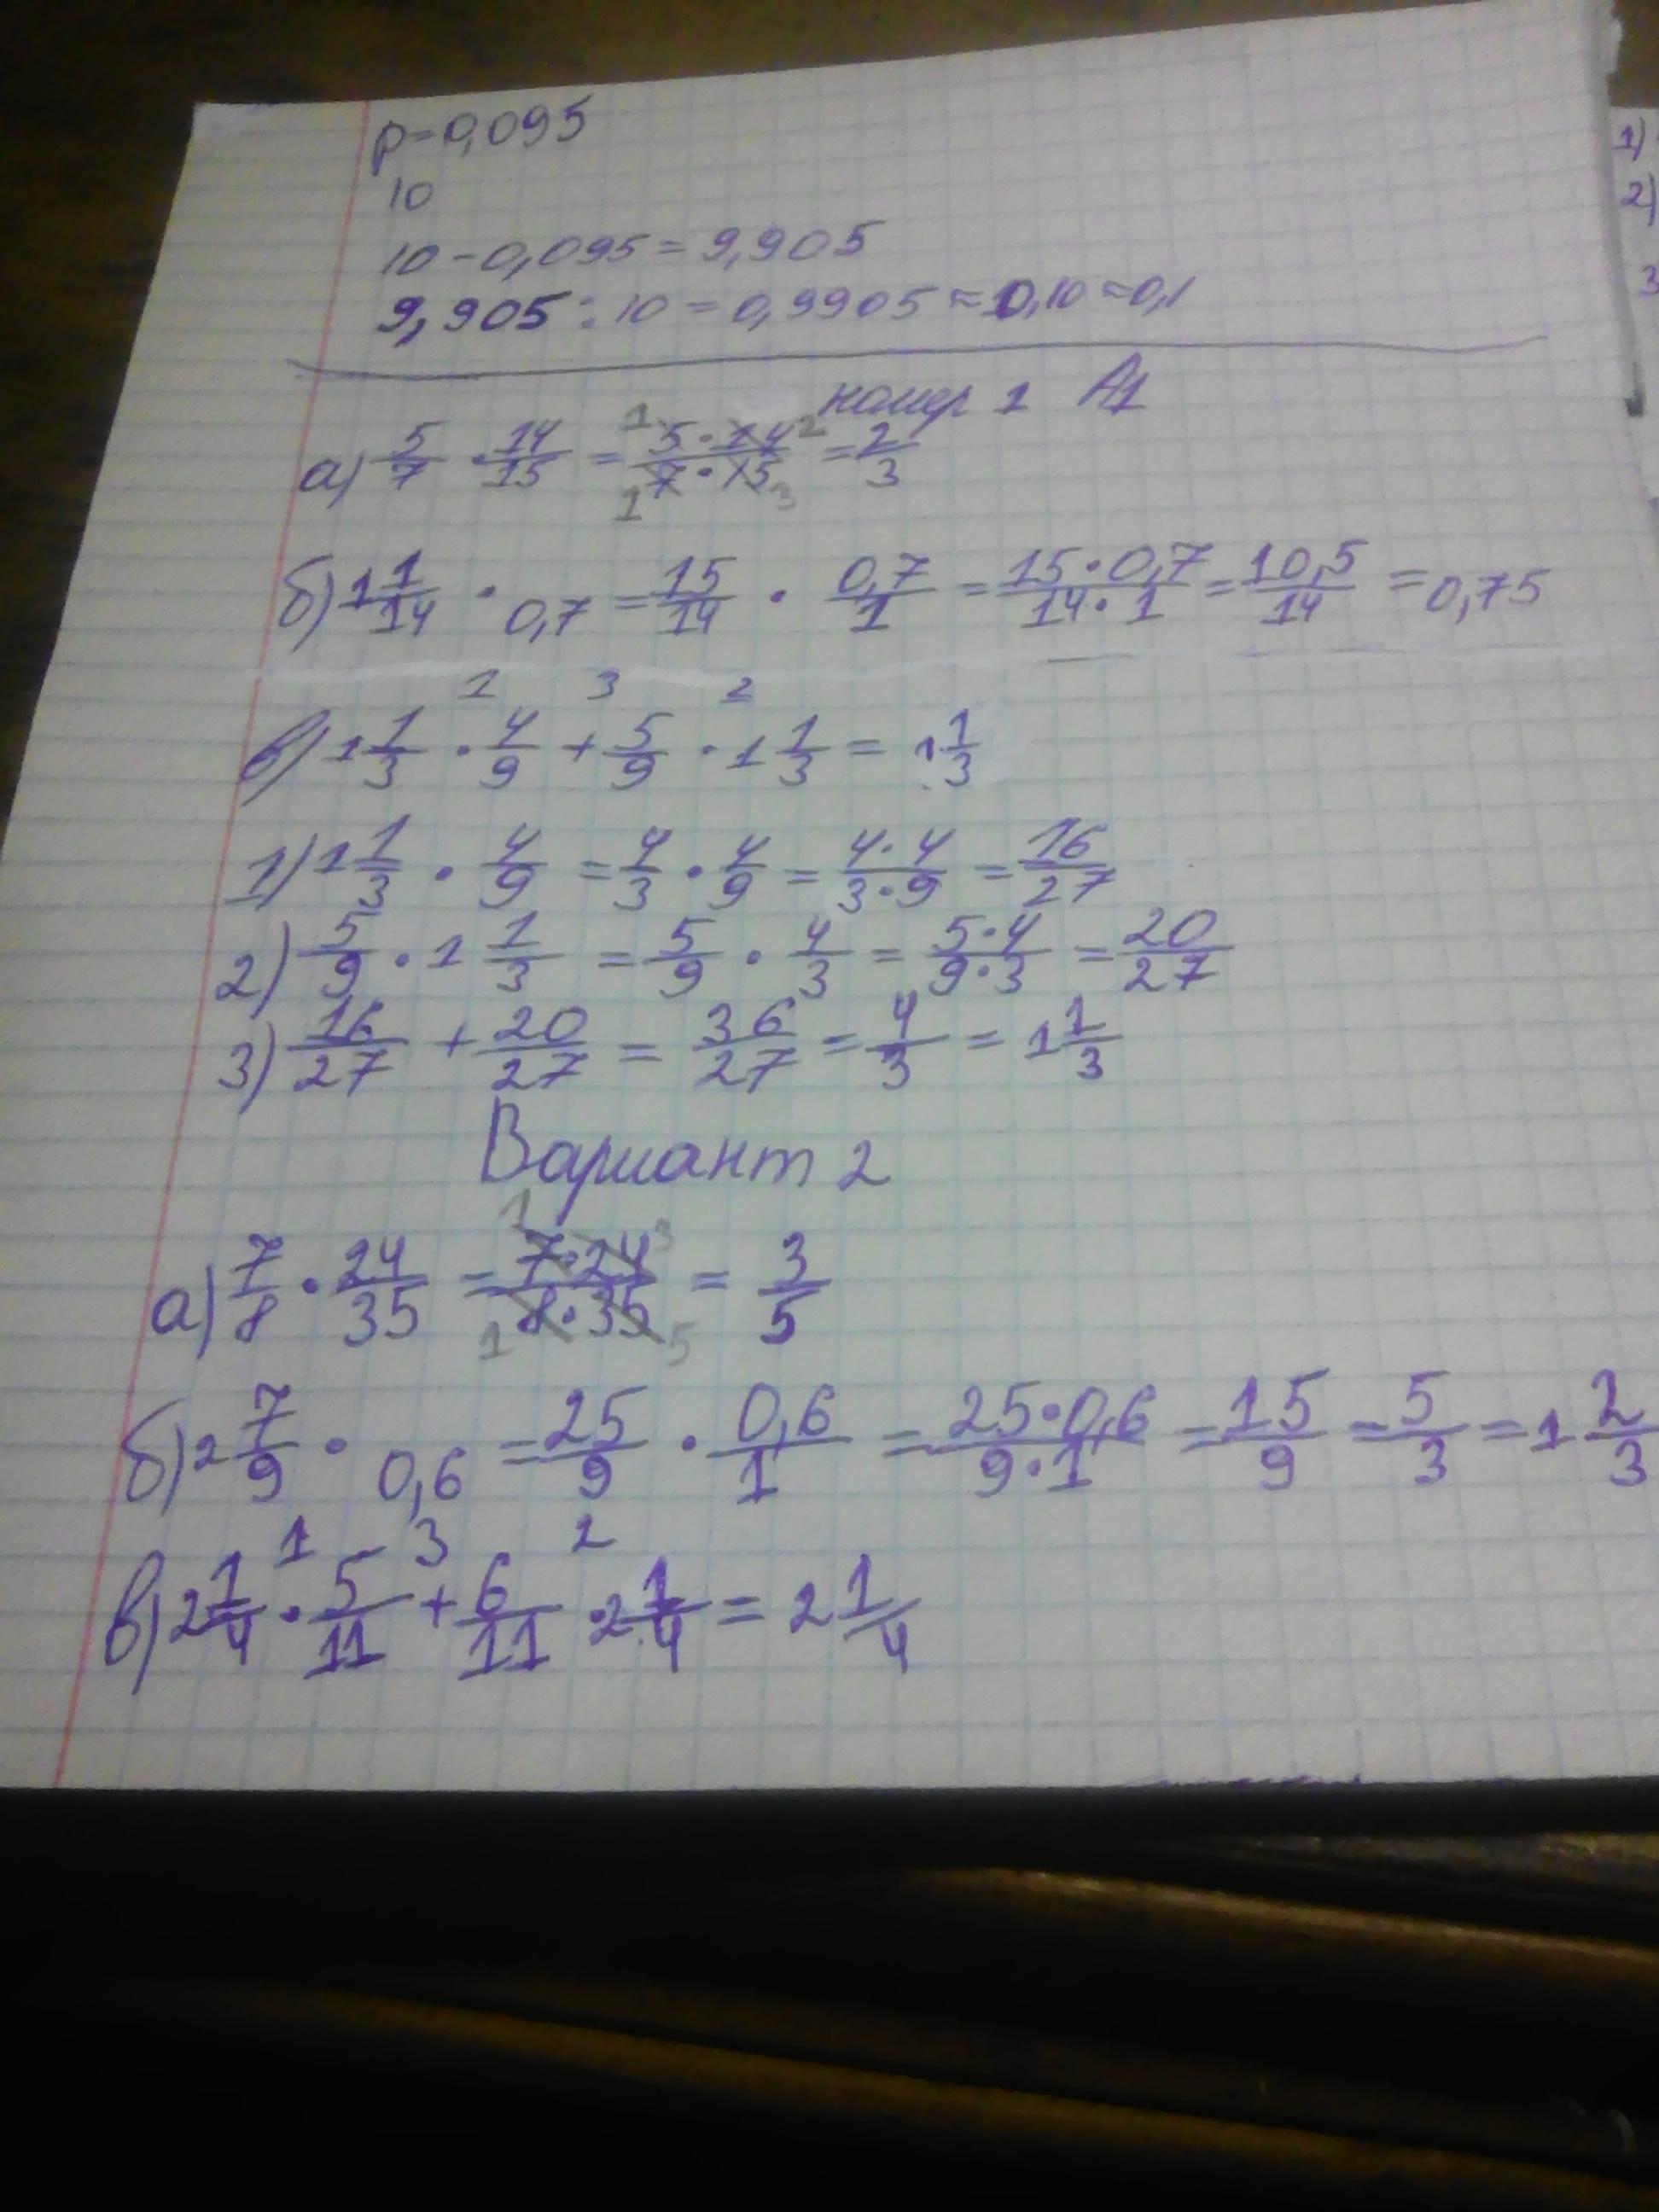 p=0,095
10
10-0,095=9,905
9,905:10=0,9905≈0,10≈0,1
номер 1 А1
а) 5/7 · 14/15 = 5·14/7·15 = 2/3
1 2
1 3
б) 1 1/14 · 0,7 = 15/14 · 0,7/1 = 15·0,7/14·1 = 10,5/14 = 0,75
1 3 2
в) 1 1/3 · 4/9 + 5/9 · 1 1/3 = 1 1/3
1) 1 1/3 · 4/9 = 4/3 · 4/9 = 4·4/3·9 = 16/27
2) 5/9 · 1 1/3 = 5/9 · 4/3 = 5·4/9·3 = 20/27
3) 16/27 + 20/27 = 36/27 = 4/3 = 1 1/3
Вариант 2
а) 7/8 · 24/35 = 7·24/8·35 = 3/5
1 3
1 5
б) 2 7/9 · 0,6 = 25/9 · 0,6/1 = 25·0,6/9·1 = 15/9 = 5/3 = 1 2/3
1 3 2
в) 2 1/4 · 5/11 + 6/11 · 2 1/4 = 2 1/4
1)
2)
3